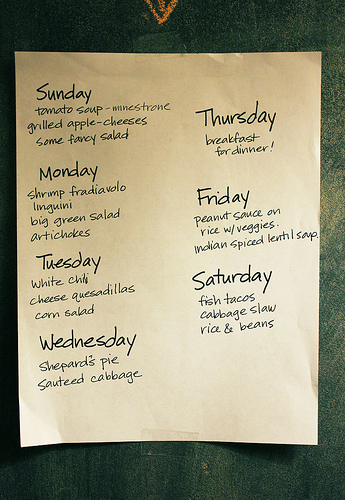 Sunday
tomato soup - minestrone
grilled apple-cheeses
some fancy salad
Monday
shrimp fradiavolo
linguini
big green salad
artichokes
Tuesday
white chili
cheese quesadillas
corn salad
Wednesday
Shepard's pie
sauteed cabbage
Thursday
breakfast
for dinner!
Friday
peanut sauce on
rice w/ veggies.
indian spiced lentil soup.
Saturday
fish tacos
cabbage slaw
rice & beans